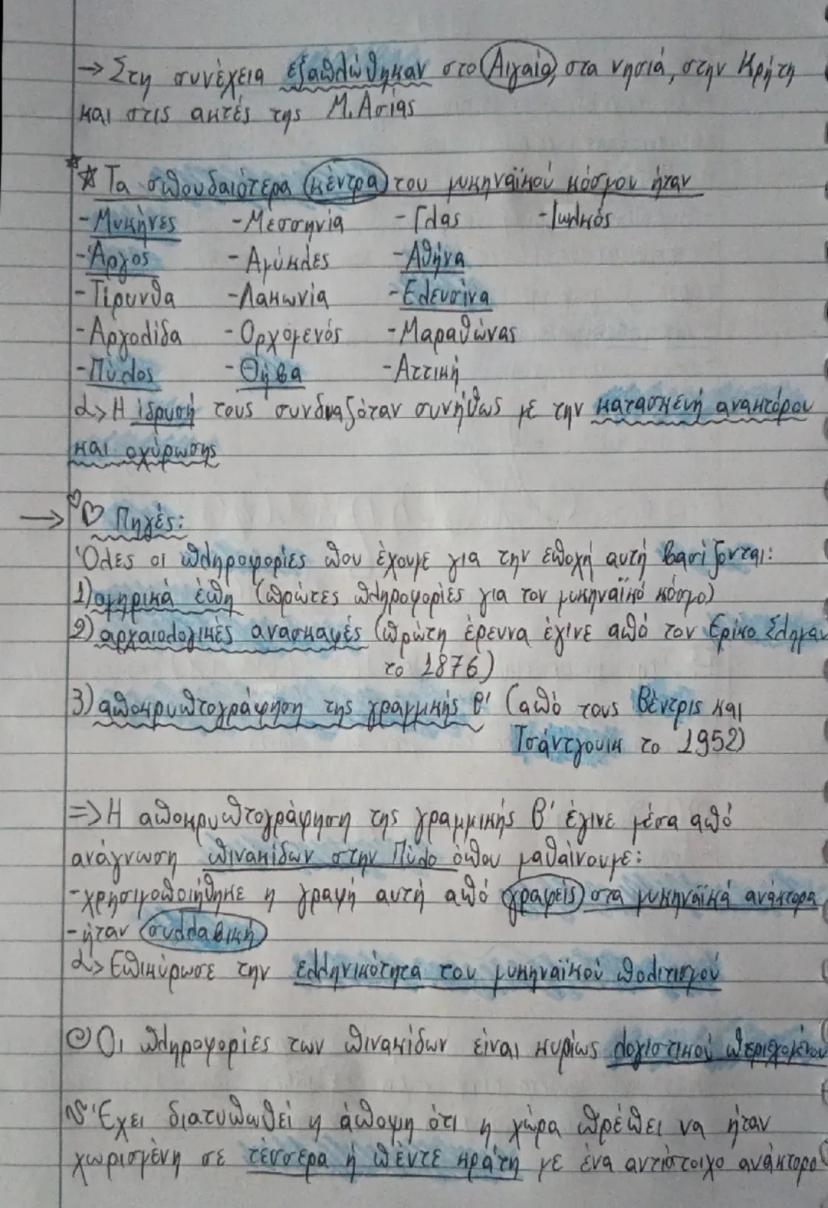 → Στη συνέχεια εξαπλώθηκαν στο Αιγαίο, στα νησιά, στην Κρήτη
και στις ακτές της Μ. Ασίας
* Τα σπουδαιότερα κέντρα του μυκηναϊκού κόσμου ήταν
-Μυκήνες -Μεσσηνία -Γλας -Ιωλκός
-Άργος -Αμύκλες -Αθήνα
-Τίρυνθα -Λακωνία -Ελευσίνα
-Αργολίδα -Ορχομενός -Μαραθώνας
-Πύλος -Θήβα -Αττική
↳> Η ίδρυσή τους συνδυαζόταν συνήθως με την κατασκευή ανακτόρου
και οχύρωσης
→ ♡♡ Πηγές:
Όλες οι πληροφορίες που έχουμε για την εποχή αυτή βασίζονται:
1) ομηρικά έπη (πρώτες πληροφορίες για τον μυκηναϊκό κόσμο)
2) αρχαιολογικές ανασκαφές (πρώτη έρευνα έγινε από τον Ερίκο Σλημαν
το 1876)
3) αποκρυπτογράφηση της γραμμικής β' (από τους Βέντρις και
Τσάντγουικ το 1952)
=> Η αποκρυπτογράφηση της γραμμικής β' έγινε μέσα από
ανάγνωση πινακίδων στην Πύλο όπου μαθαίνουμε:
-χρησιμοποιήθηκε η γραφή αυτή από γραφείς στα μυκηναϊκά ανάκτορα
-ήταν συλλαβική
↳> Επικύρωσε την ελληνικότητα του μυκηναϊκού πολιτισμού
Οι πληροφορίες των πινακίδων είναι κυρίως λογιστικού περιεχομένου
Έχει διατυπωθεί η άποψη ότι η χώρα πρέπει να ήταν
χωρισμένη σε τέσσερα ή πέντε κράτη με ένα αντίστοιχο ανάκτορο